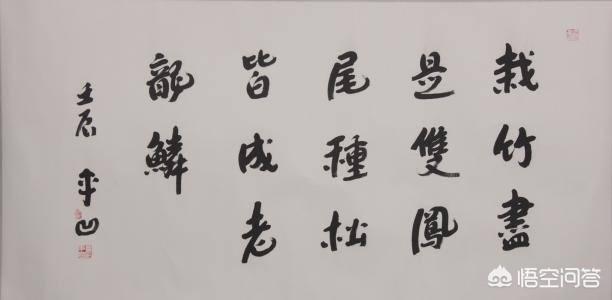 栽竹盡
是雙鳳
尾種松
皆成老
龍鱗
壬辰 平凹
悟空问答